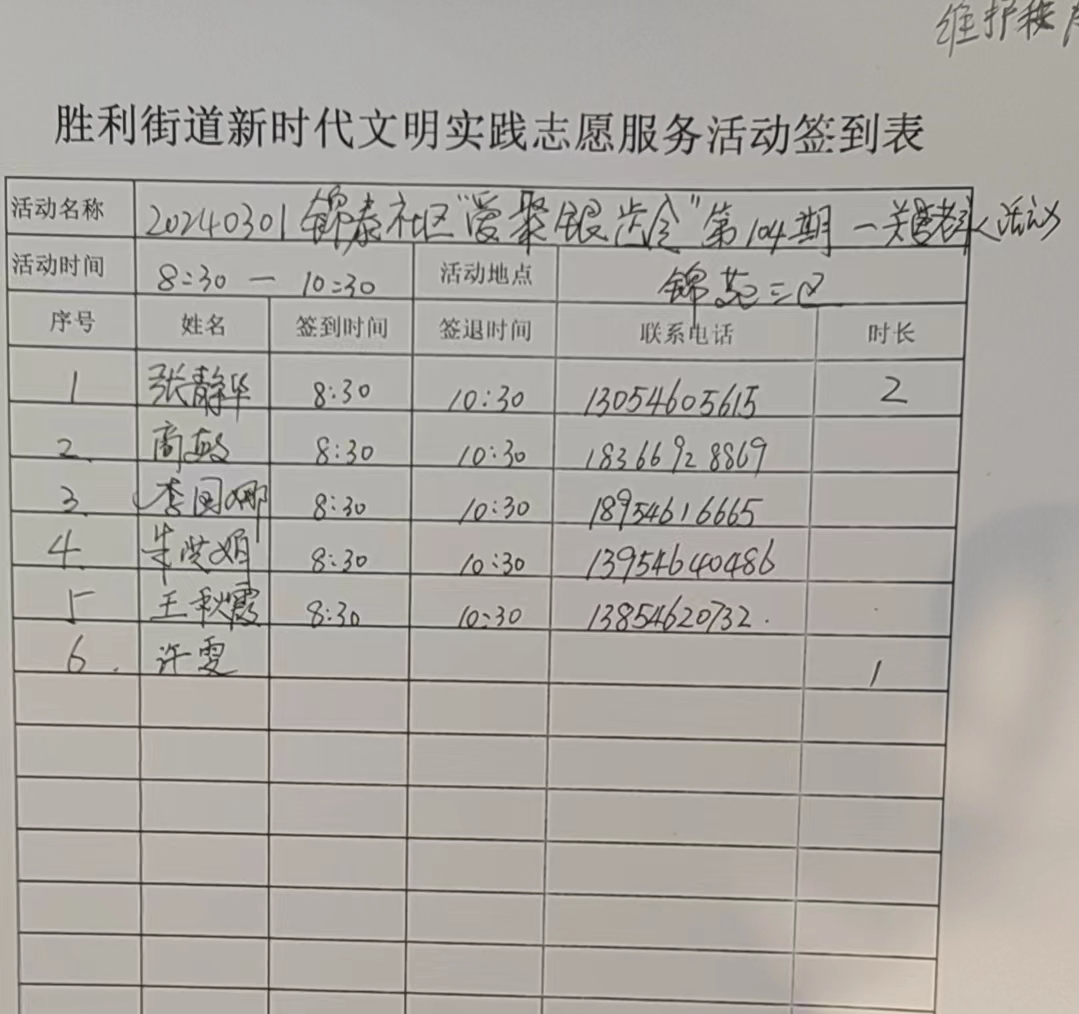 维护秩
胜利街道新时代文明实践志愿服务活动签到表
活动名称 20240301锦泰社区"爱聚银龄"第104期一关爱老人活动
活动时间 8:30 — 10:30 活动地点 锦苑三区
序号 姓名 签到时间 签退时间 联系电话 时长
1 张静华 8:30 10:30 13054605615 2
2. 高敏 8:30 10:30 18366928869
3. 李国娜 8:30 10:30 18954616665
4. 朱娟 8:30 10:30 13954640486
5 王秋霞 8:30 10:30 13854620732.
6. 许雯 1